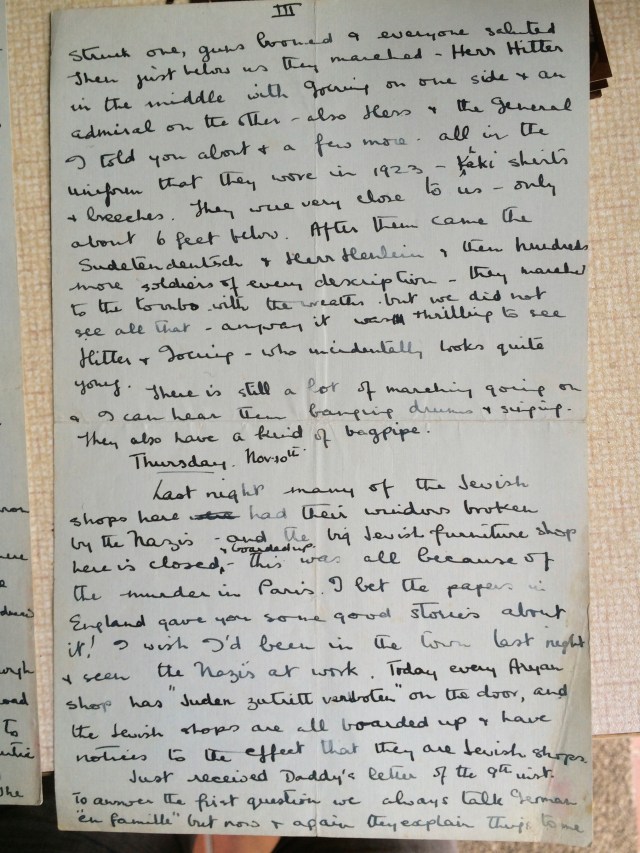 III
struck one, guns boomed & everyone saluted
Then just below us they marched - Herr Hitler
in the middle with Goering on one side & an
admiral on the other - also Hess & the General
I told you about & a few more. all in the
uniform that they wore in 1923 - Kaki shirts
& breeches. They were very close to us - only
about 6 feet below. After them came the
Sudetendeutsch & Herr Henlein & then hundreds
more soldiers of every description - they marched
to the tombs with the wreaths but we did not
see all that - anyway it was thrilling to see
Hitler & Goering - who incidentally looks quite
young. There is still a lot of marching going on
& I can hear them banging drums & singing.
They also have a kind of bagpipe.
Thursday. Nov. 10th.
Last night many of the Jewish
shops here had their windows broken
by the Nazis - and the big Jewish furniture shop
here is closed, & boarded up. - this was all because of
the murder in Paris. I bet the papers in
England gave you some good stories about
it! I wish I'd been in the town last night
& seen the Nazis at work. Today every Aryan
shop has "Juden zutritt verboten" on the door, and
the Jewish shops are all boarded up & have
notices to the effect that they are Jewish shops.
Just received Daddy's letter of the 9th inst.
To answer the first question we always talk German
"en famille" but now & again they explain things to me